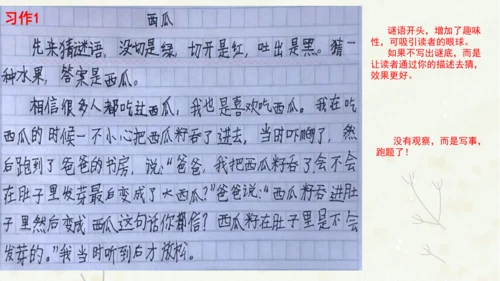 习作1
西瓜
先来猜谜语，没切是绿，切开是红，吐出是黑。猜一
种水果，答案是西瓜。
相信很多人都吃过西瓜，我也是喜欢吃西瓜。我在吃
西瓜的时候一不小心把西瓜籽吞了进去，当时吓哨了，然
后跑到了爸爸的书房，说：“爸爸，我把西瓜籽吞了会不会
在肚子里发芽最后变成了大西瓜？”爸爸说：“西瓜籽进肚
子里然后变成西瓜这句话你都信？西瓜籽在肚子里是不会
发芽的。”我当时听到后才放松。
谜语开头，增加了趣味
性，可吸引读者的眼球。
如果不写出谜底，而是
让读者通过你的描述去猜，
效果更好。
没有观察，而是写事，
跑题了！